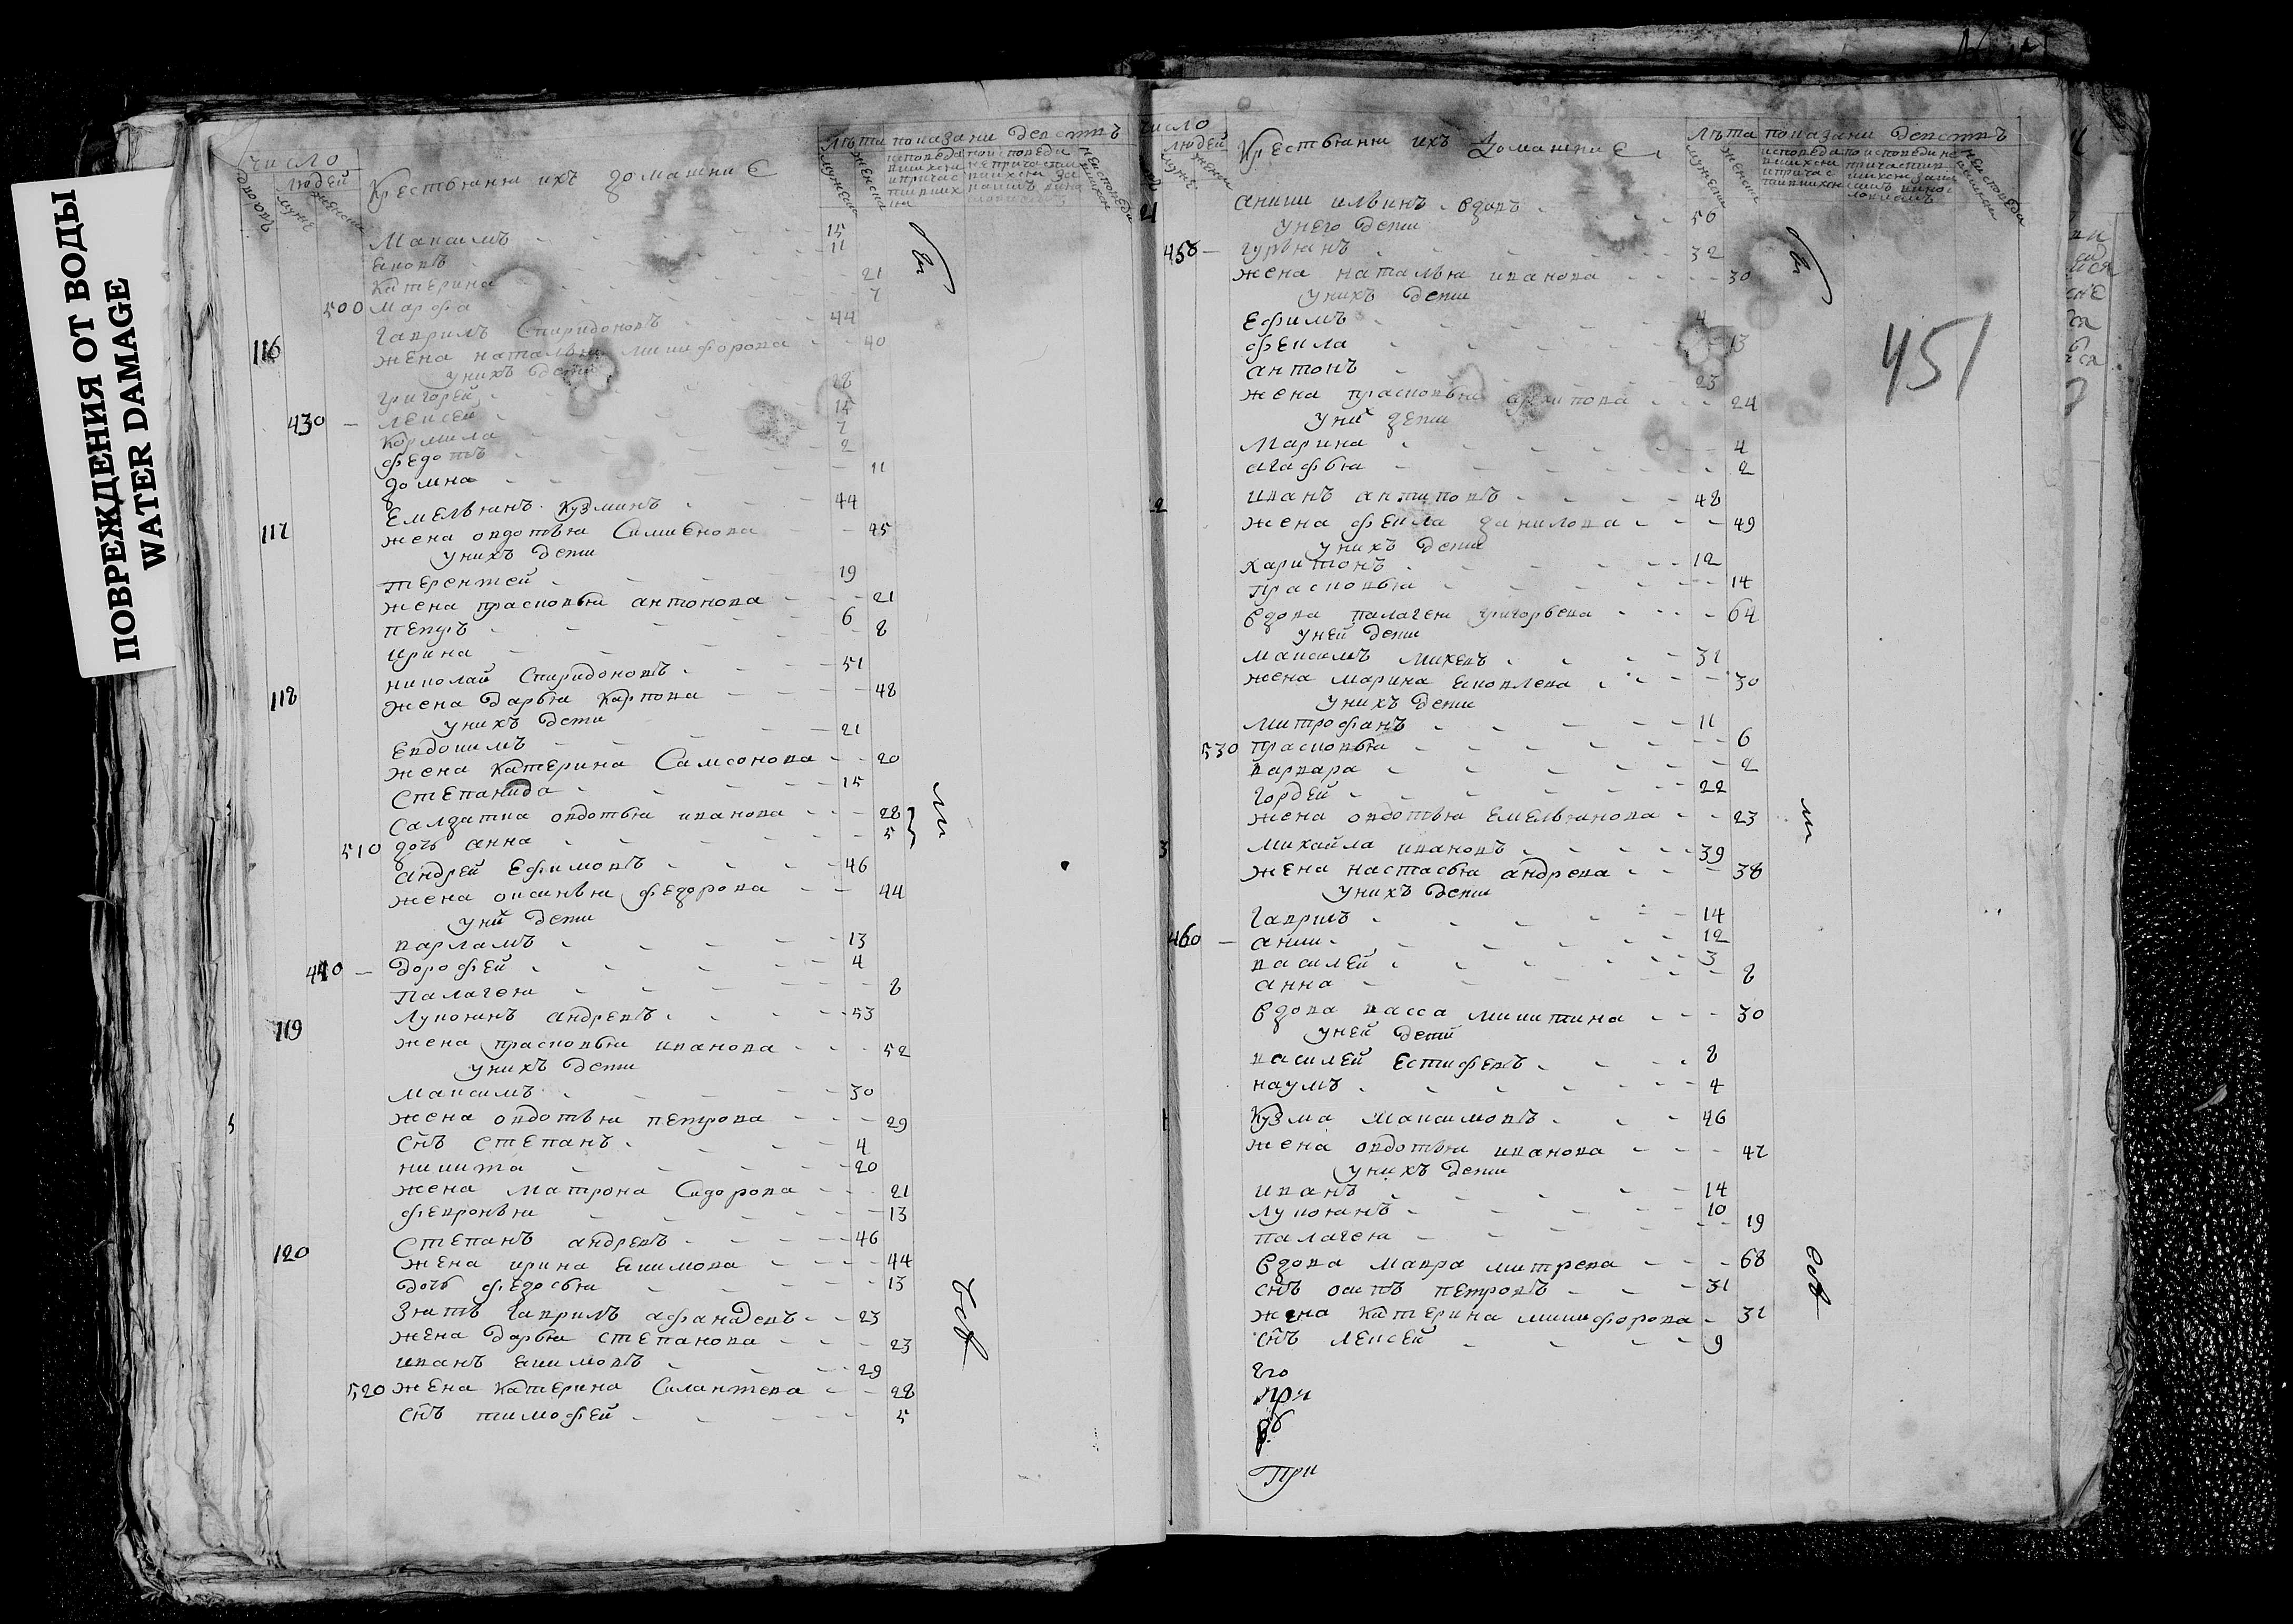 ПОВРЕЖДЕНИЯ ОТ ВОДЫ
WATER DAMAGE
число
дворовъ
людей
мужс
женска
Крестьяня ихъ домашние
Лѣта
показани действъ
мужеска
женска
Максимъ 15
Яковъ 11
Катерина 21
500 Марфа 7
116 Гаврилъ Спиридоновъ 44
жена наталья никифорова 40
у нихъ дети
григорей 18
430 лексей 15
Кормила 7
федотъ 2
домна 11
117 Емельянъ Кузминъ 44
жена овдотья Симиенова 45
у нихъ дети
терентей 19
жена прасковья антонова 21
петръ 6
ирина 8
118 николай Спиридоновъ 51
жена дарья Карпова 48
у нихъ дети
Евдокимъ 21
жена Катерина Самсонова 20
Степанида 15
Салдатка овдотья иванова 28
510 дочь анна 5
андрей Ефимовъ 46
жена оксинья федорова 44
у них дети
варламъ 13
440 дорофей 4
Палагея 8
119 Лукоянъ андревъ 53
жена прасковья иванова 52
у нихъ дети
максимъ 30
жена овдотья петрова 29
снъ степанъ 4
никита 20
жена матрона Сидорова 21
февронья 13
120 Степанъ андревъ 46
жена ирина якимова 44
дочь федосья 13
Зять гаврилъ афанасевъ 23
жена дарья степанова 23
иванъ якимовъ 29
520 жена катерина Силантева 28
снъ тимофей 5
число
людей
мужс
женск
Крестьяня ихъ домашние
Лѣта
показани действъ
мужеска
женска
21 аники ильинъ вдовъ 56
у него дети
450 гурьянъ 32
жена наталья иванова 30
у нихъ дети
Ефимъ 4
фекла 13
антонъ 25
жена прасковья архипова 24
у них дети
Марина 4
агафья 2
2 иванъ антиповъ 48
жена фекла данилова 49
у нихъ дети
харитонъ 12
прасковья 14
вдова палагея григорьева 64
у ней дети
максимъ михевъ 31
жена марина яковлева 30
у нихъ дети
митрофанъ 11
530 прасковья 6
варвара 2
гордей 22
жена овдотья Емельянова 23
3 михайла ивановъ 39
жена настасья андрева 38
у нихъ дети
гаврилъ 14
460 аники 12
василей 3
анна 8
вдова васса никитина 30
у ней дети
василей Естифевъ 8
наумъ 4
Кузма максимовъ 46
жена овдотья иванова 47
у нихъ дети
иванъ 14
Лукоянъ 10
палагея 19
вдова мавра митрева 68
снъ осипъ петровъ 31
жена катерина никифорова 31
снъ лексей 9
что
при
При
451